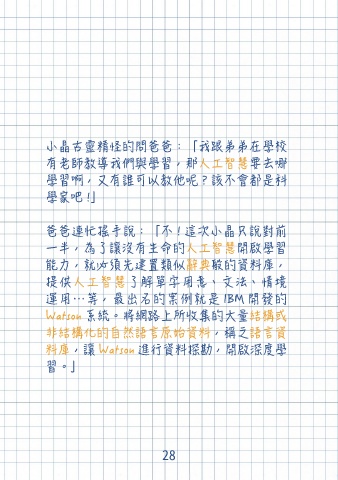 小晶古靈精怪的問爸爸：「我跟弟弟在學校
有老師教導我們與學習，那人工智慧要去哪
學習啊，又有誰可以教他呢？該不會都是科
學家吧！」
爸爸連忙搖手說：「不！這次小晶只說對前
一半，為了讓沒有生命的人工智慧開啟學習
能力，就必須先建置類似辭典般的資料庫，
提供人工智慧了解單字用意、文法、情境
運用…等，最出名的案例就是 IBM 開發的
Watson 系統。將網路上所收集的大量結構或
非結構化的自然語言原始資料，稱之語言資
料庫，讓 Watson 進行資料探勘，開啟深度學
習。」
28